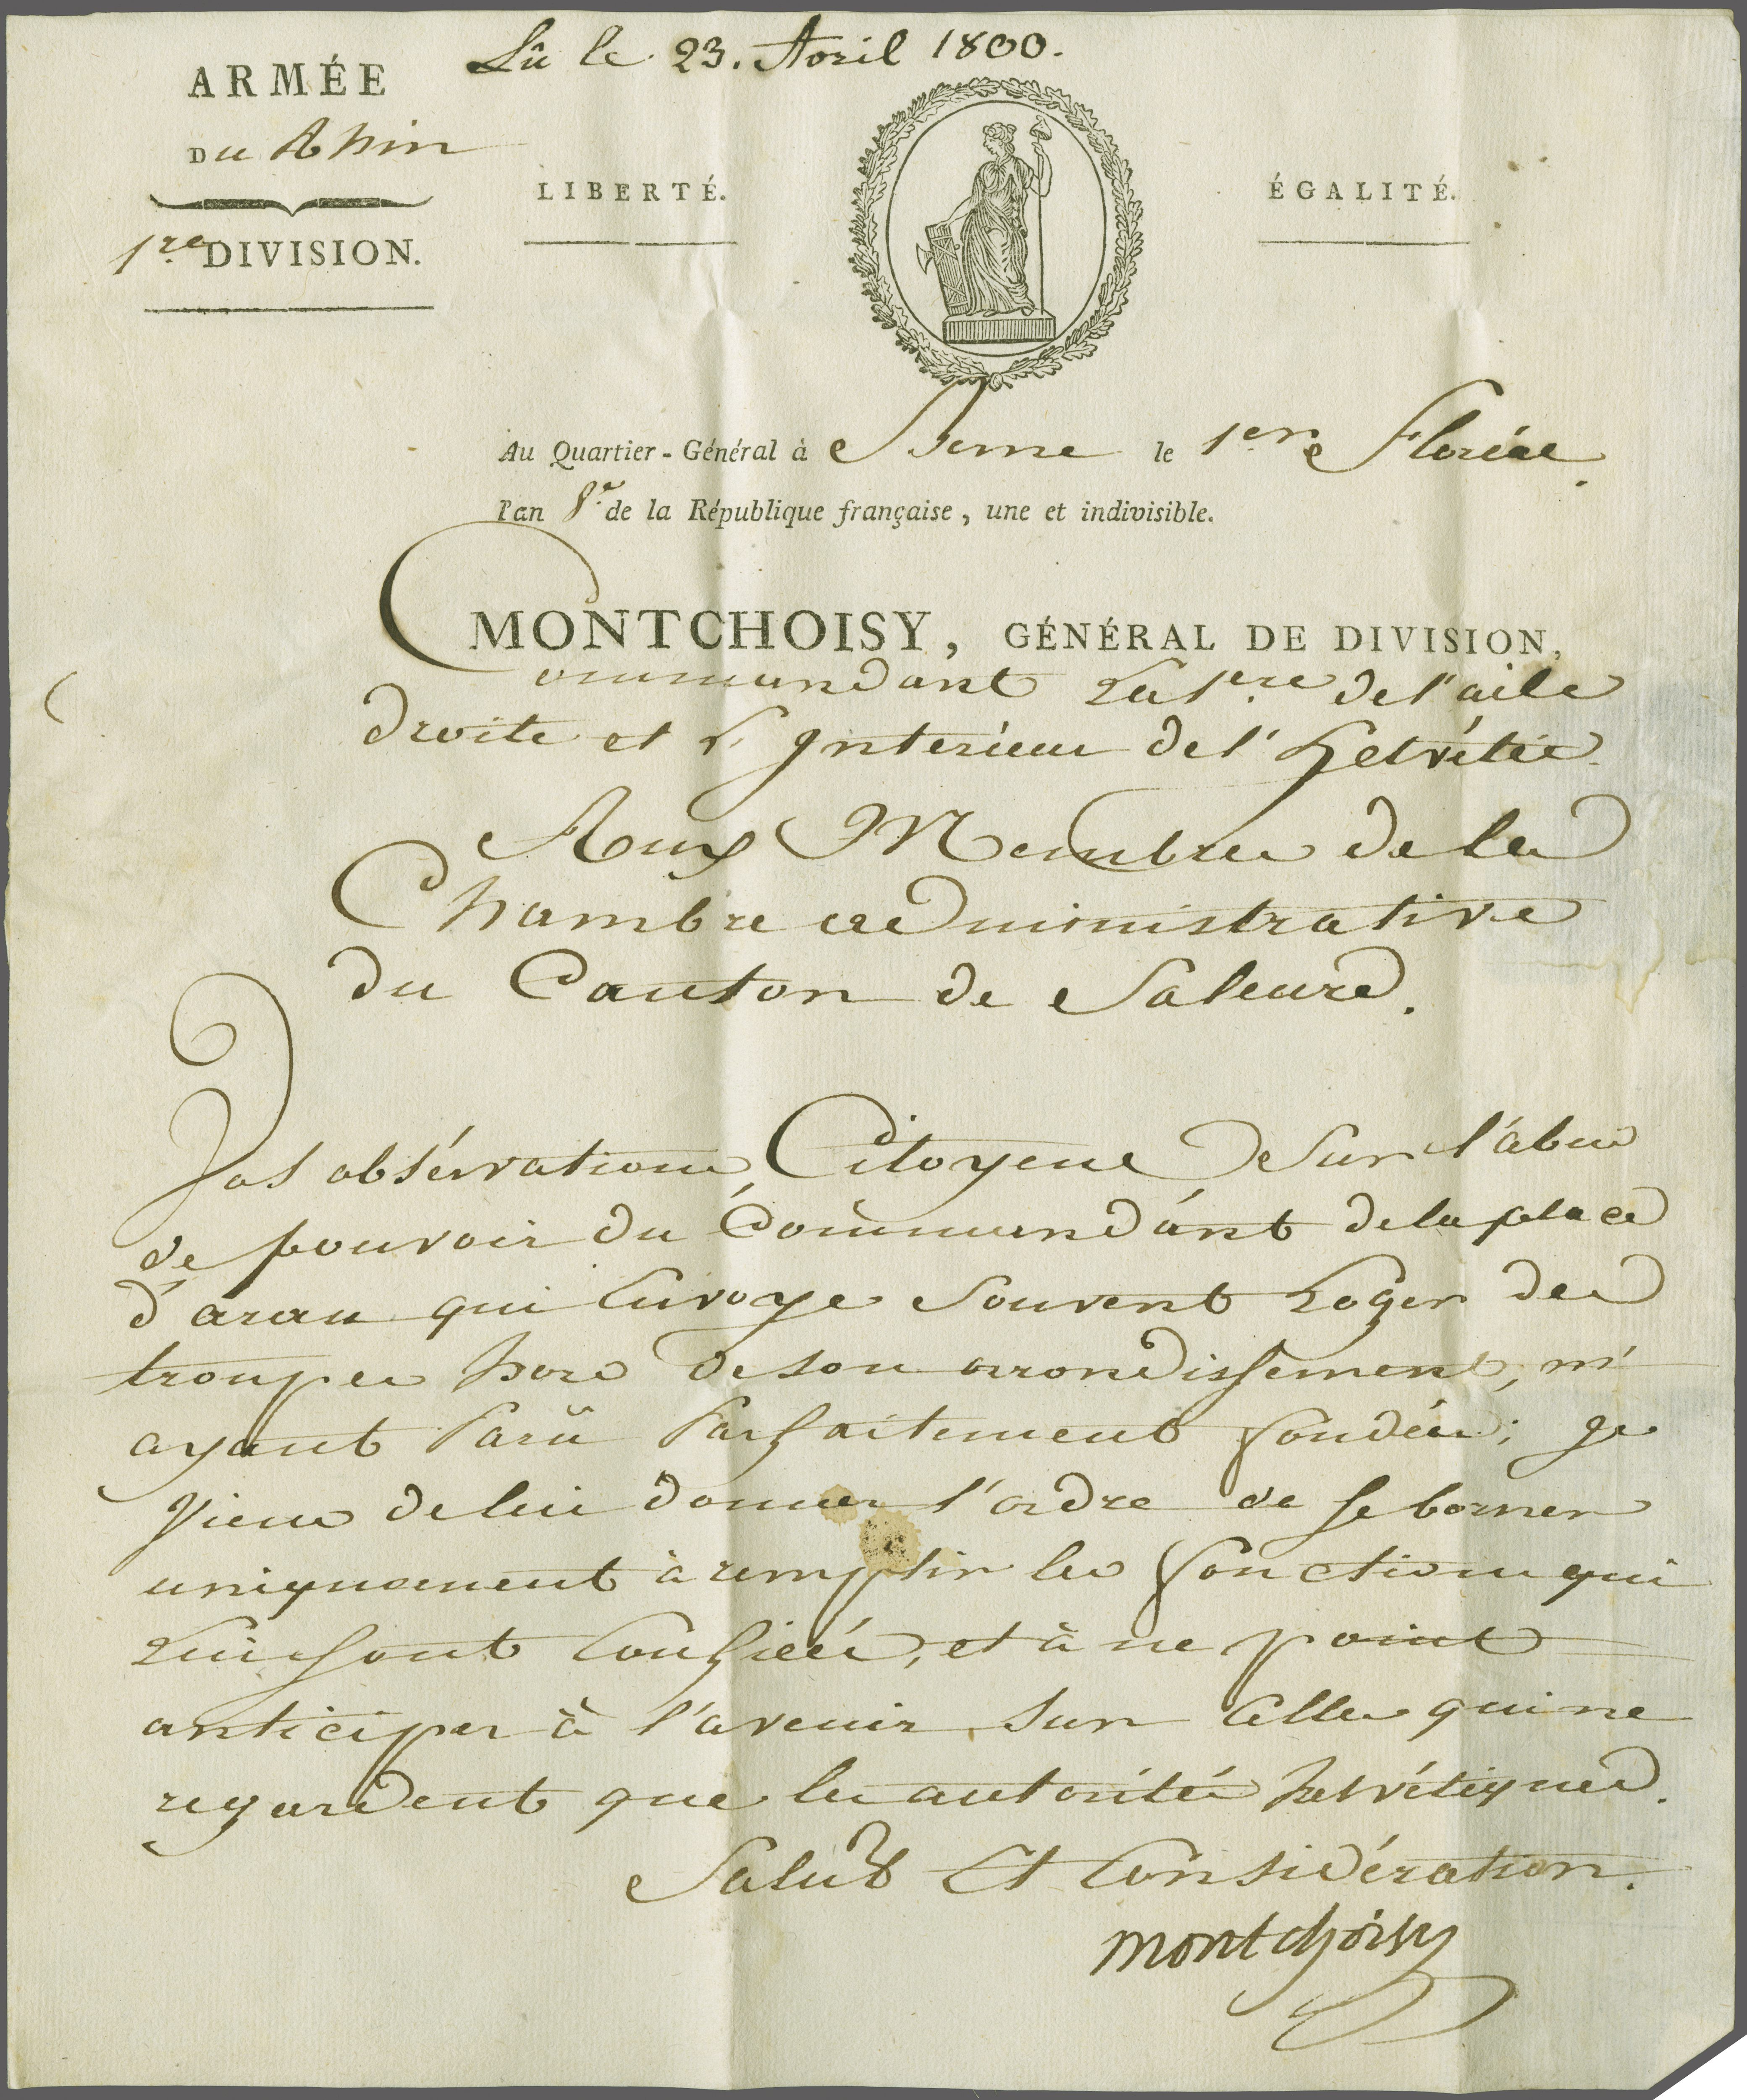 Lû le 23. Avril 1800.
ARMÉE
DU Rhin
1.re DIVISION.
LIBERTÉ.
ÉGALITÉ.
Au Quartier-Général à Berne le 1.er Floréal.
l'an 8.e de la République française, une et indivisible.
MONTCHOISY, GÉNÉRAL DE DIVISION,
Commandant La 1.ere de l'aile
droite et L'Interieur de l'helvétie.
Aux Membres de la
Chambre administrative
du Canton de Soleure.
Vos obsérvations, Citoyens Sur l'abus
de pouvoir du Commandant de la place
d'arau qui Envoye Souvent Loger des
troupes hors de son arrondissement, m'
ayant Parû Parfaitement fondées; Je
Viens de lui donner l'ordre de se borner
uniquement à remplir les fonctions qui
Lui sont Confiées, et à ne point
anticiper à l'avenir Sur Celles qui ne
regardent que les autorités helvétiques.
Salut Et Considération.
montchoisy